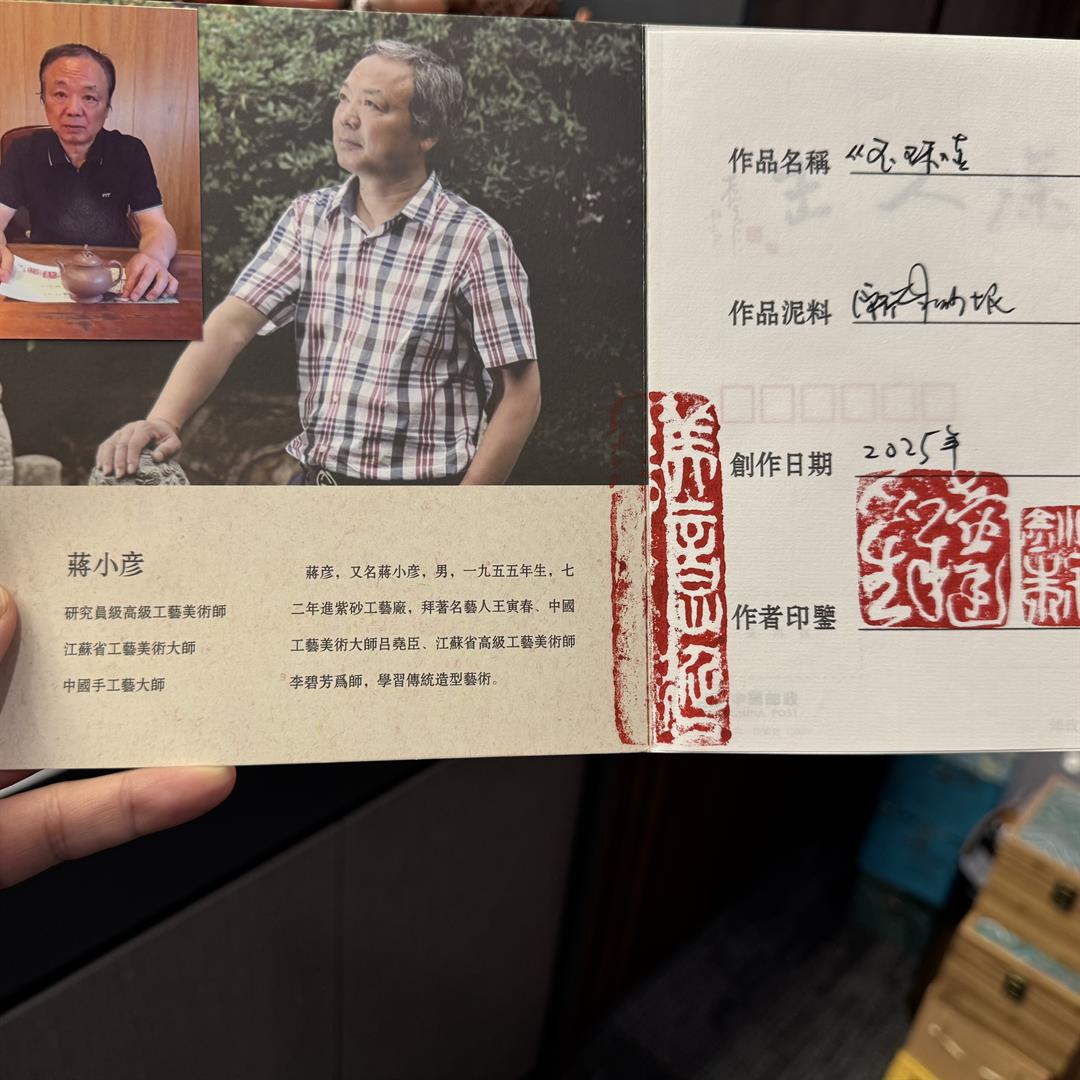 蔣小彦
研究員級高級工藝美術師
江蘇省工藝美術大師
中國手工藝大師
蔣彦，又名蔣小彦，男，一九五五年生，七
二年進紫砂工藝廠，拜著名藝人王寅春、中國
工藝美術大師吕堯臣、江蘇省高級工藝美術師
李碧芳爲師，學習傳統造型藝術。
作品名稱
作品泥料
創作日期 2025年
作者印鑒